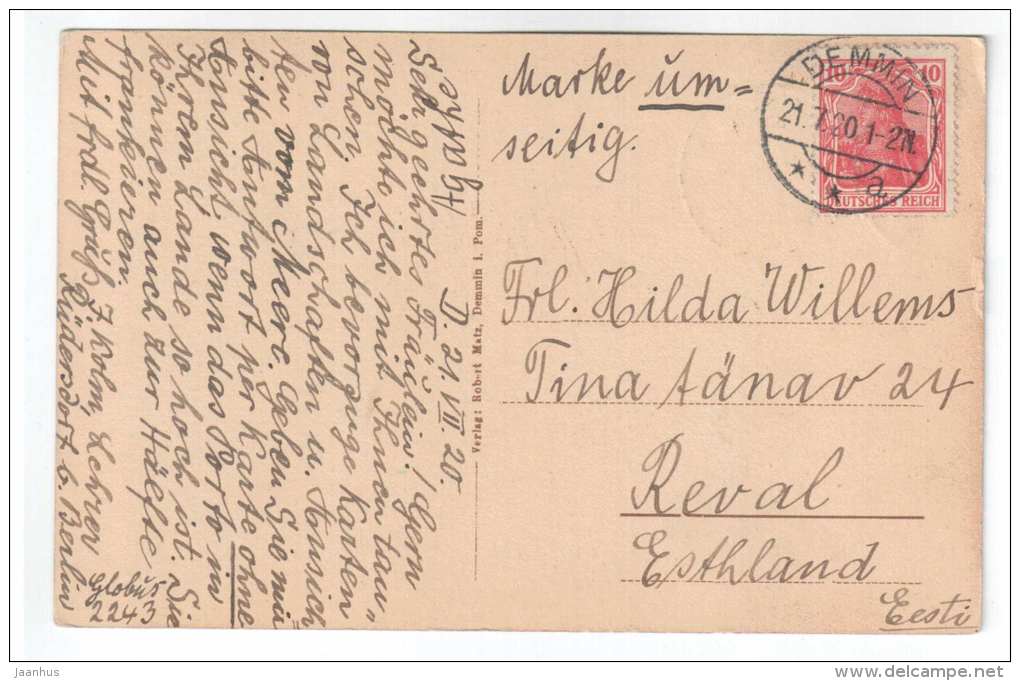 D. 21. VII. 20.
Sehr geehrtes Fräulein! Gern
möchte ich mit Ihnen tau-
schen. Ich bevorzuge Karten
von Landschaften u. Ansich
ten vom Meere. Geben Sie mir
bitte Antwort per Karte ohne
Ansicht wenn das Porto in
Ihrem Lande so hoch ist. Sie
können auch zur Hälfte
frankieren.
Mit frdl. Gruß J. Kolm, Lehrer
Rüdersdorf b. Berlin
Globus
2243
Verlag: Robert Matz, Demmin i. Pom.
Marke um=
seitig.
DEMMIN
21.7.20.1-2N.
* * a
10 10
DEUTSCHES REICH
Frl. Hilda Willems
Tina tänav 24
Reval
Esthland
Eesti
jaanhus
www.delcampe.net